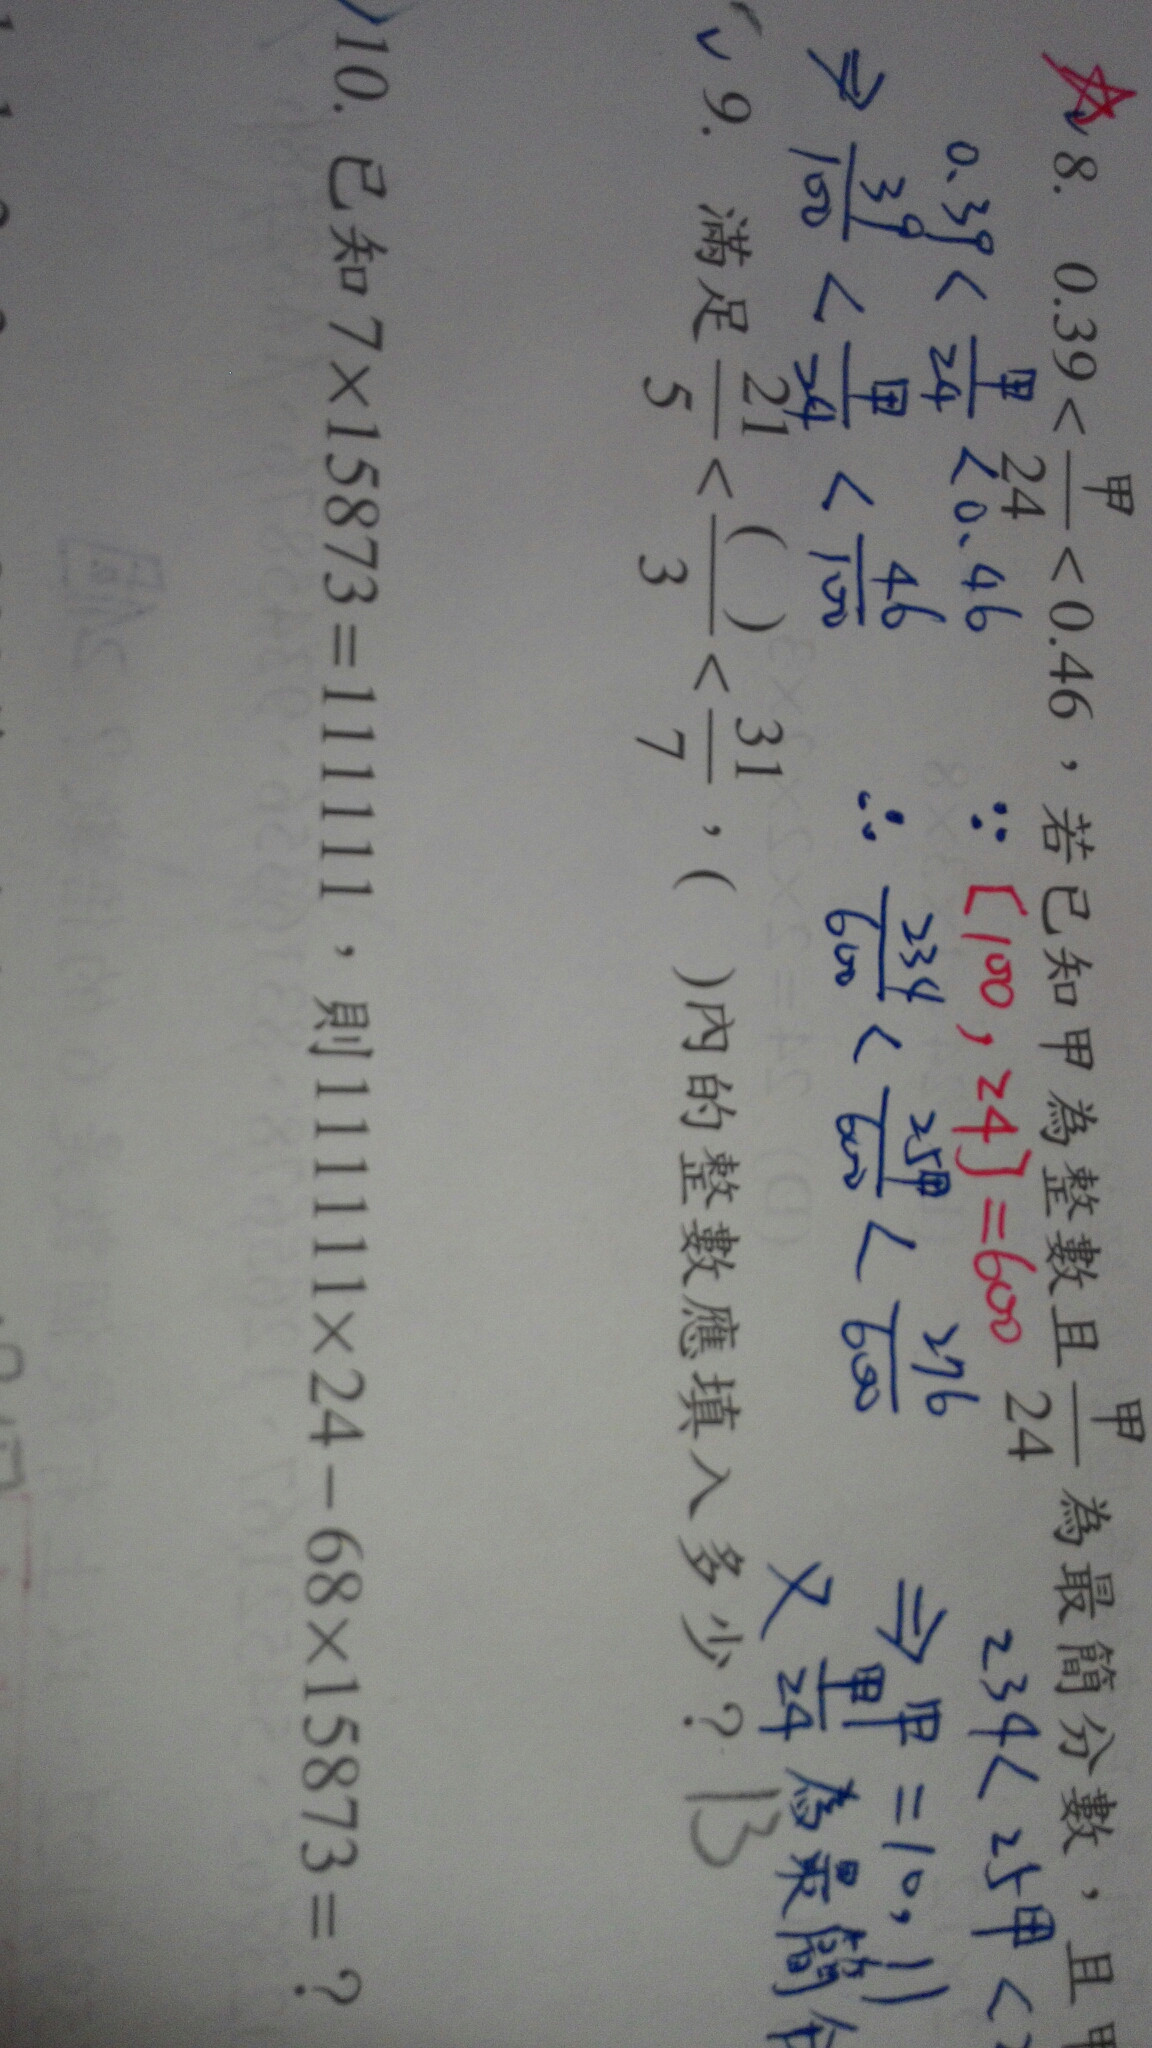 8. 0.39 < 甲/24 < 0.46，若已知甲為整數且 甲/24 為最簡分數，且甲
0.39 < 甲/24 < 0.46
∵ [100, 24] = 600
234 < 25甲 <
⇒ 39/100 < 甲/24 < 46/100
∴ 234/600 < 25甲/600 < 276/600
⇒ 甲 = 10, 11
又 甲/24 為最簡
9. 滿足 21/5 < ( )/3 < 31/7，( )內的整數應填入多少？ 13
10. 已知7×15873=111111，則111111×24－68×15873=？